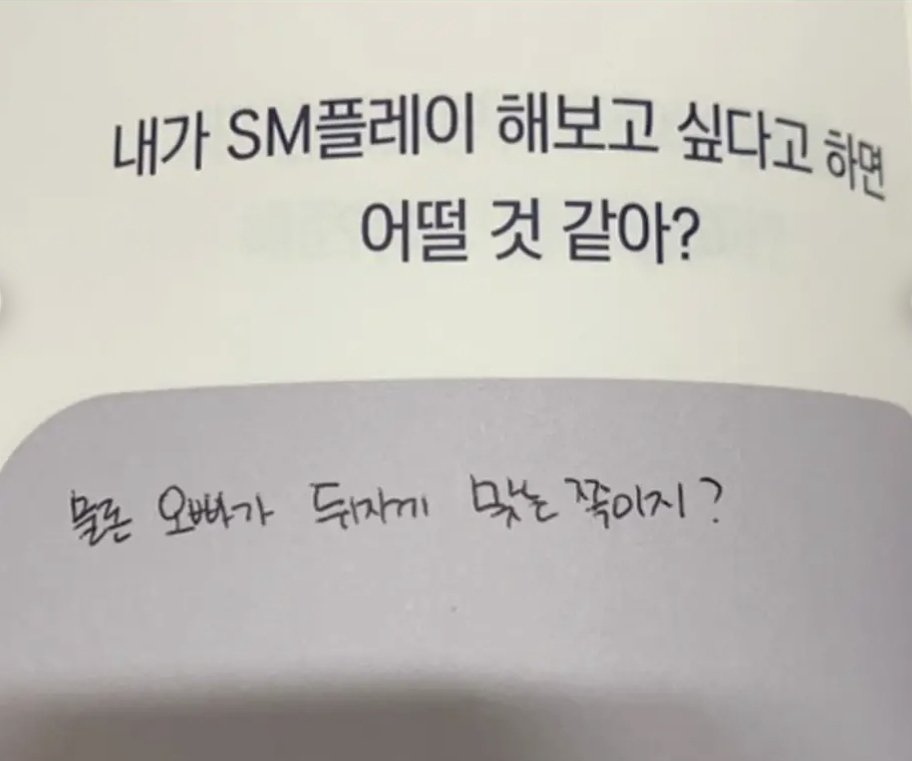 내가 SM플레이 해보고 싶다고 하면
어떨 것 같아?
물론 오빠가 뒤지게 맞는 쪽이지?